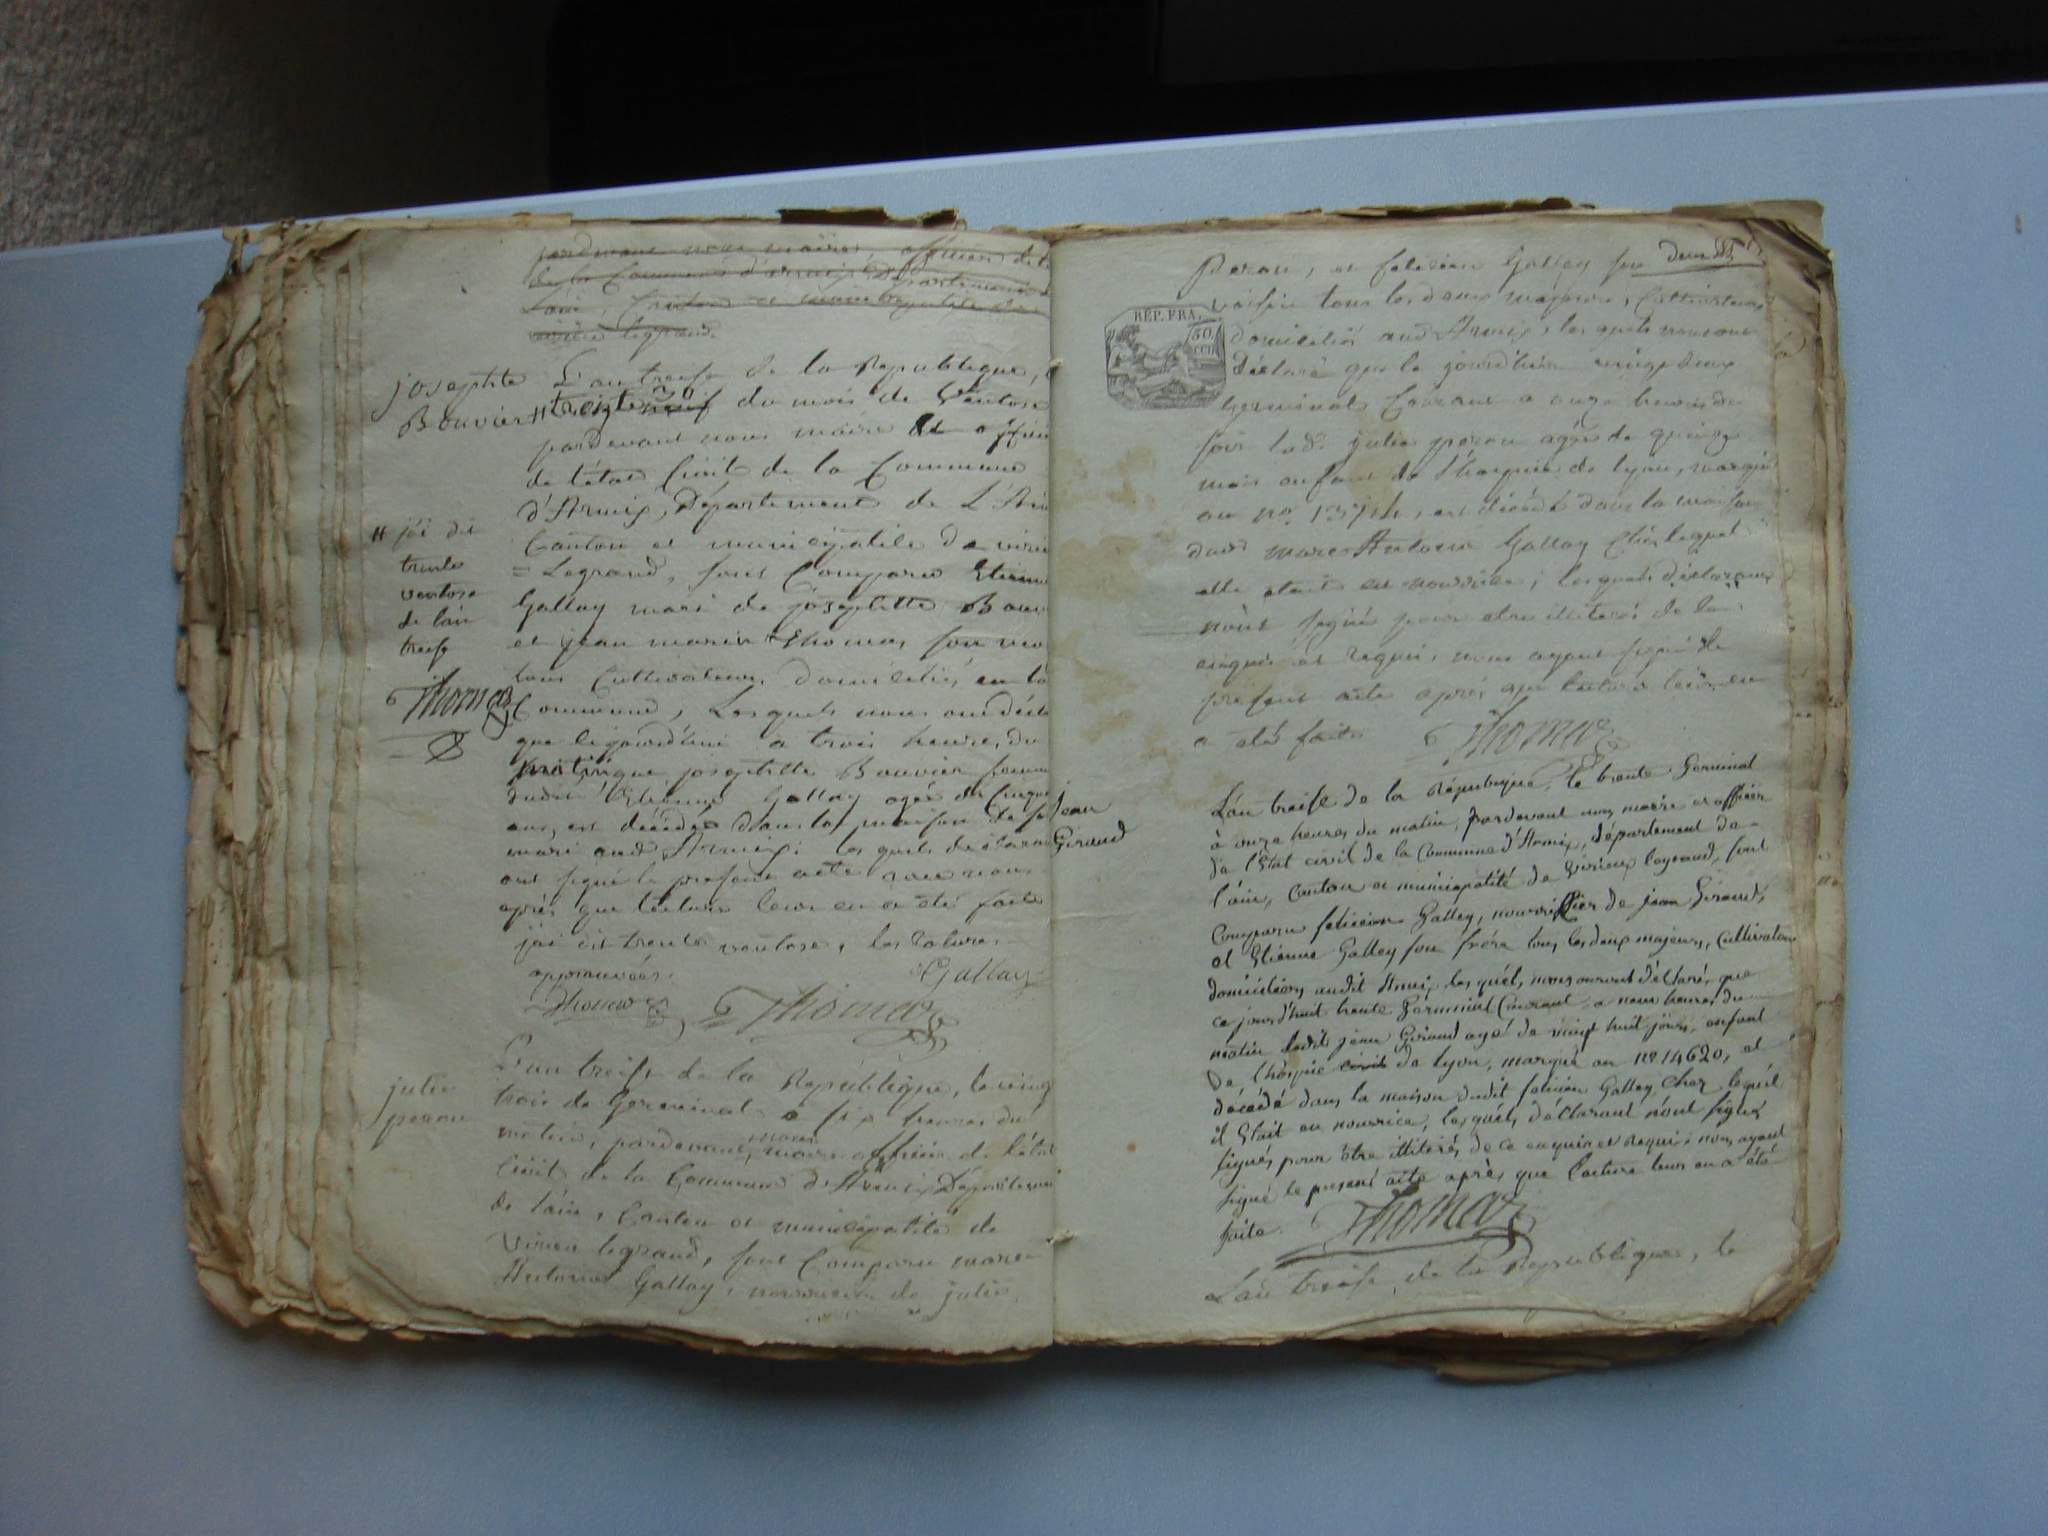 pardevant nous maire officier de l
de la Commune d'armix Département d
L'ain, Canton et municipalité de
virieu legrand.
josephte
Bouvier
L'an treise de la Republique,
trente du mois de Ventose
pardevant nous maire et offici
de l'état Civil de la Commune
d'Armix, Département de L'Ain
Canton et municipalité de virie
= Legrand, sont Comparu Etienne
Gallay mari de josephtte Bouv
et jean marie Thomas son
tous Cultivateurs domiciliés en la
Commune, Lesquels nous ont décla
que le jourd'hui a trois heures du
josephtte Bouvier femme
dudit Etienne Gallay agée de Cinqu
ans, est décédée dans la maison de s
mari aud. Armix: les quels déclarant
ont signé le present acte avec nous
après que lecture leur en a été faite
j'ai dit trente ventose, les ratures
approuvées.
Gallay
Thomas
Thomas
# j'ai dit
trente
ventose
de l'an
treise
Thomas
julie
peron
L'an treise de la Republique, le vingt
trois de Germinal a six heures du
matin, pardevant nous maire officier de l'état
Civil de la Commune d'Armix Département
de l'ain, Canton et municipalité de
Virieu legrand, sont Comparu marc
Antoine Gallay, nourricier de julie
deux
Peron, et felicien Gallay son
voisin tous les deux majeurs, Cultivateurs
RÉP. FRA.
50.
CEN
domiciliés aud Armix, les quels nous ont
déclaré que le jourd'hier vingt deux
Germinal Courant a onze heures du
soir lad. julie peron agée de quinze
mois enfant de l'hospice de lyon, marqué
au no. 13714, est décédé dans la maison
dud marc Antoine Gallay Chés lequel
elle etait en nourrice; lesquels déclarant
nont signé pour etre illiteré de la
enquis et requis, nous ayant signé le
présent acte après que lecture leur en
a été faite Thomas
jean
Giraud
L'an treise de la République, le trente Germinal
à onze heures du matin, pardevant nous maire et officier
de l'Etat civil de la Commune d'Armix, département de
l'ain, Canton et municipalité de Virieux legrand, sont
Comparu felicien Gallay, nourriffier de jean Giraud,
et Etienne Gallay son frére tous les deux majeurs, Cultivateurs
domiciliers audit Armix les quels, nous auront déclaré que
ce jourd'huit trente Germinal Courant a neuf heures du
matin ledit jean Giraud agé de vingt huit jours, enfant
de l'hospice civil de lyon, marqué au no. 14620, et
décédé dans la maison dudit felicien Gallay Chez lequel
il Etait en nourrice, lesquels déclarant n'ont signé
signés pour être illiterés de ce enquis et requis nous ayant
signé le present acte après que lecture leur en a été
faite. Thomas
L'an treise de la Republique, le